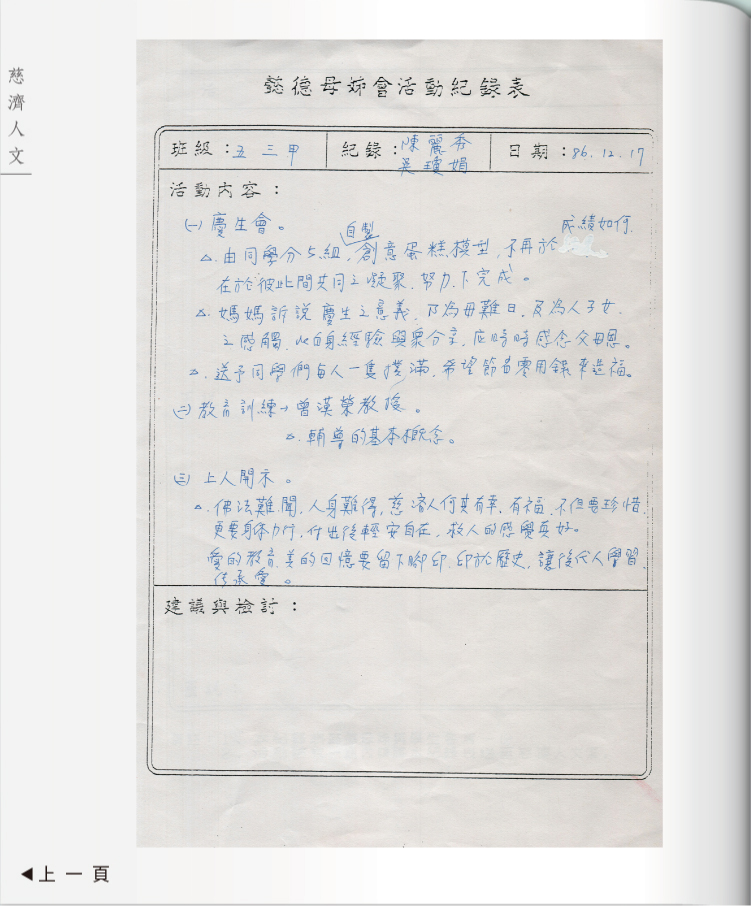 慈濟人文
懿德母姊會活動紀錄表
班級：五三甲 紀錄：陳麗秀 吳瓊娟 日期：86.12.17
活動內容：
(一) 慶生會。
△. 由同學分5組，自製創意蛋糕模型，不再於成績如何，
在於彼此間共同之凝聚、努力下完成。
△. 媽媽訴說慶生之意義，乃為母難日，及為人子女
之感觸，以自身經驗與眾分享，應時時感念父母恩。
△. 送予同學們每人一隻撲滿，希望節省零用錢來造福。
(二) 教育訓練→曾漢榮教授。
△. 輔導的基本概念。
(三) 上人開示。
△. 佛法難聞，人身難得，慈濟人何其有幸，有福，不但要珍惜
更要身体力行，付出後輕安自在，救人的感覺真好。
愛的教育，美的回憶要留下腳印，印於歷史，讓後代人學習，
传承愛。
建議與檢討：
◀上一頁